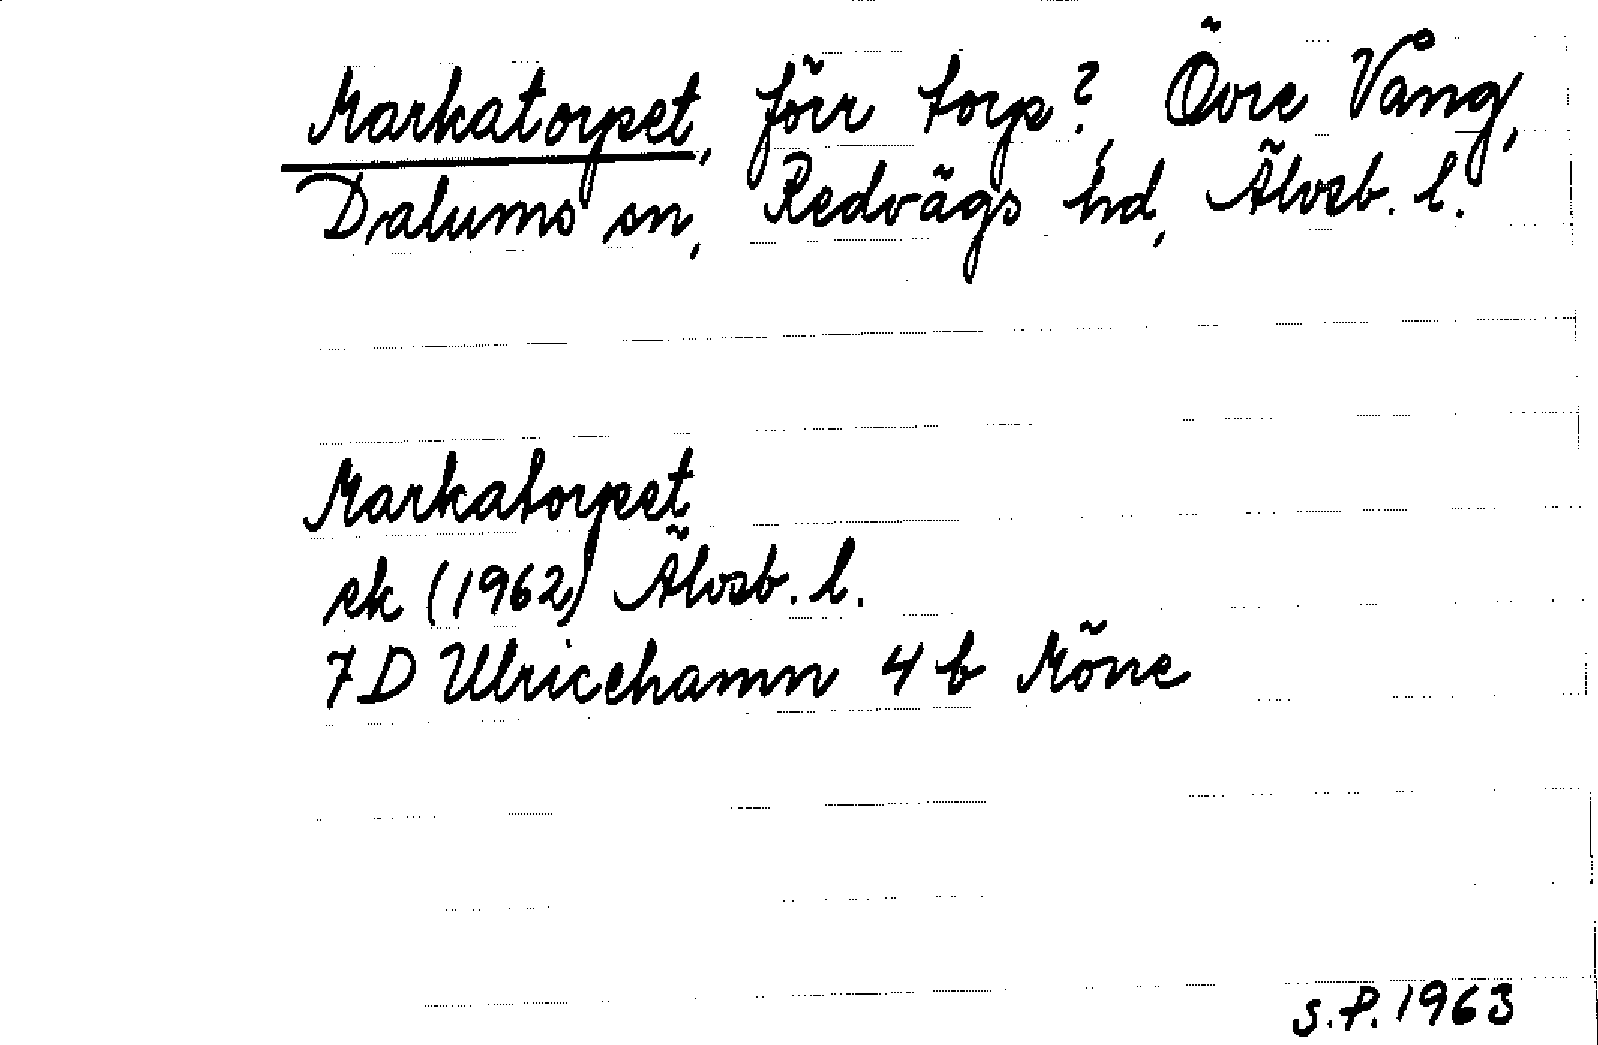 Markatorpet, förr torp?, Övre Vång,
Dalums sn, Redvägs hd, Älvsb. l.
Markatorpet
ek (1962) Älvsb. l.
7 D Ulricehamn 4 b Möne
S.P. 1963